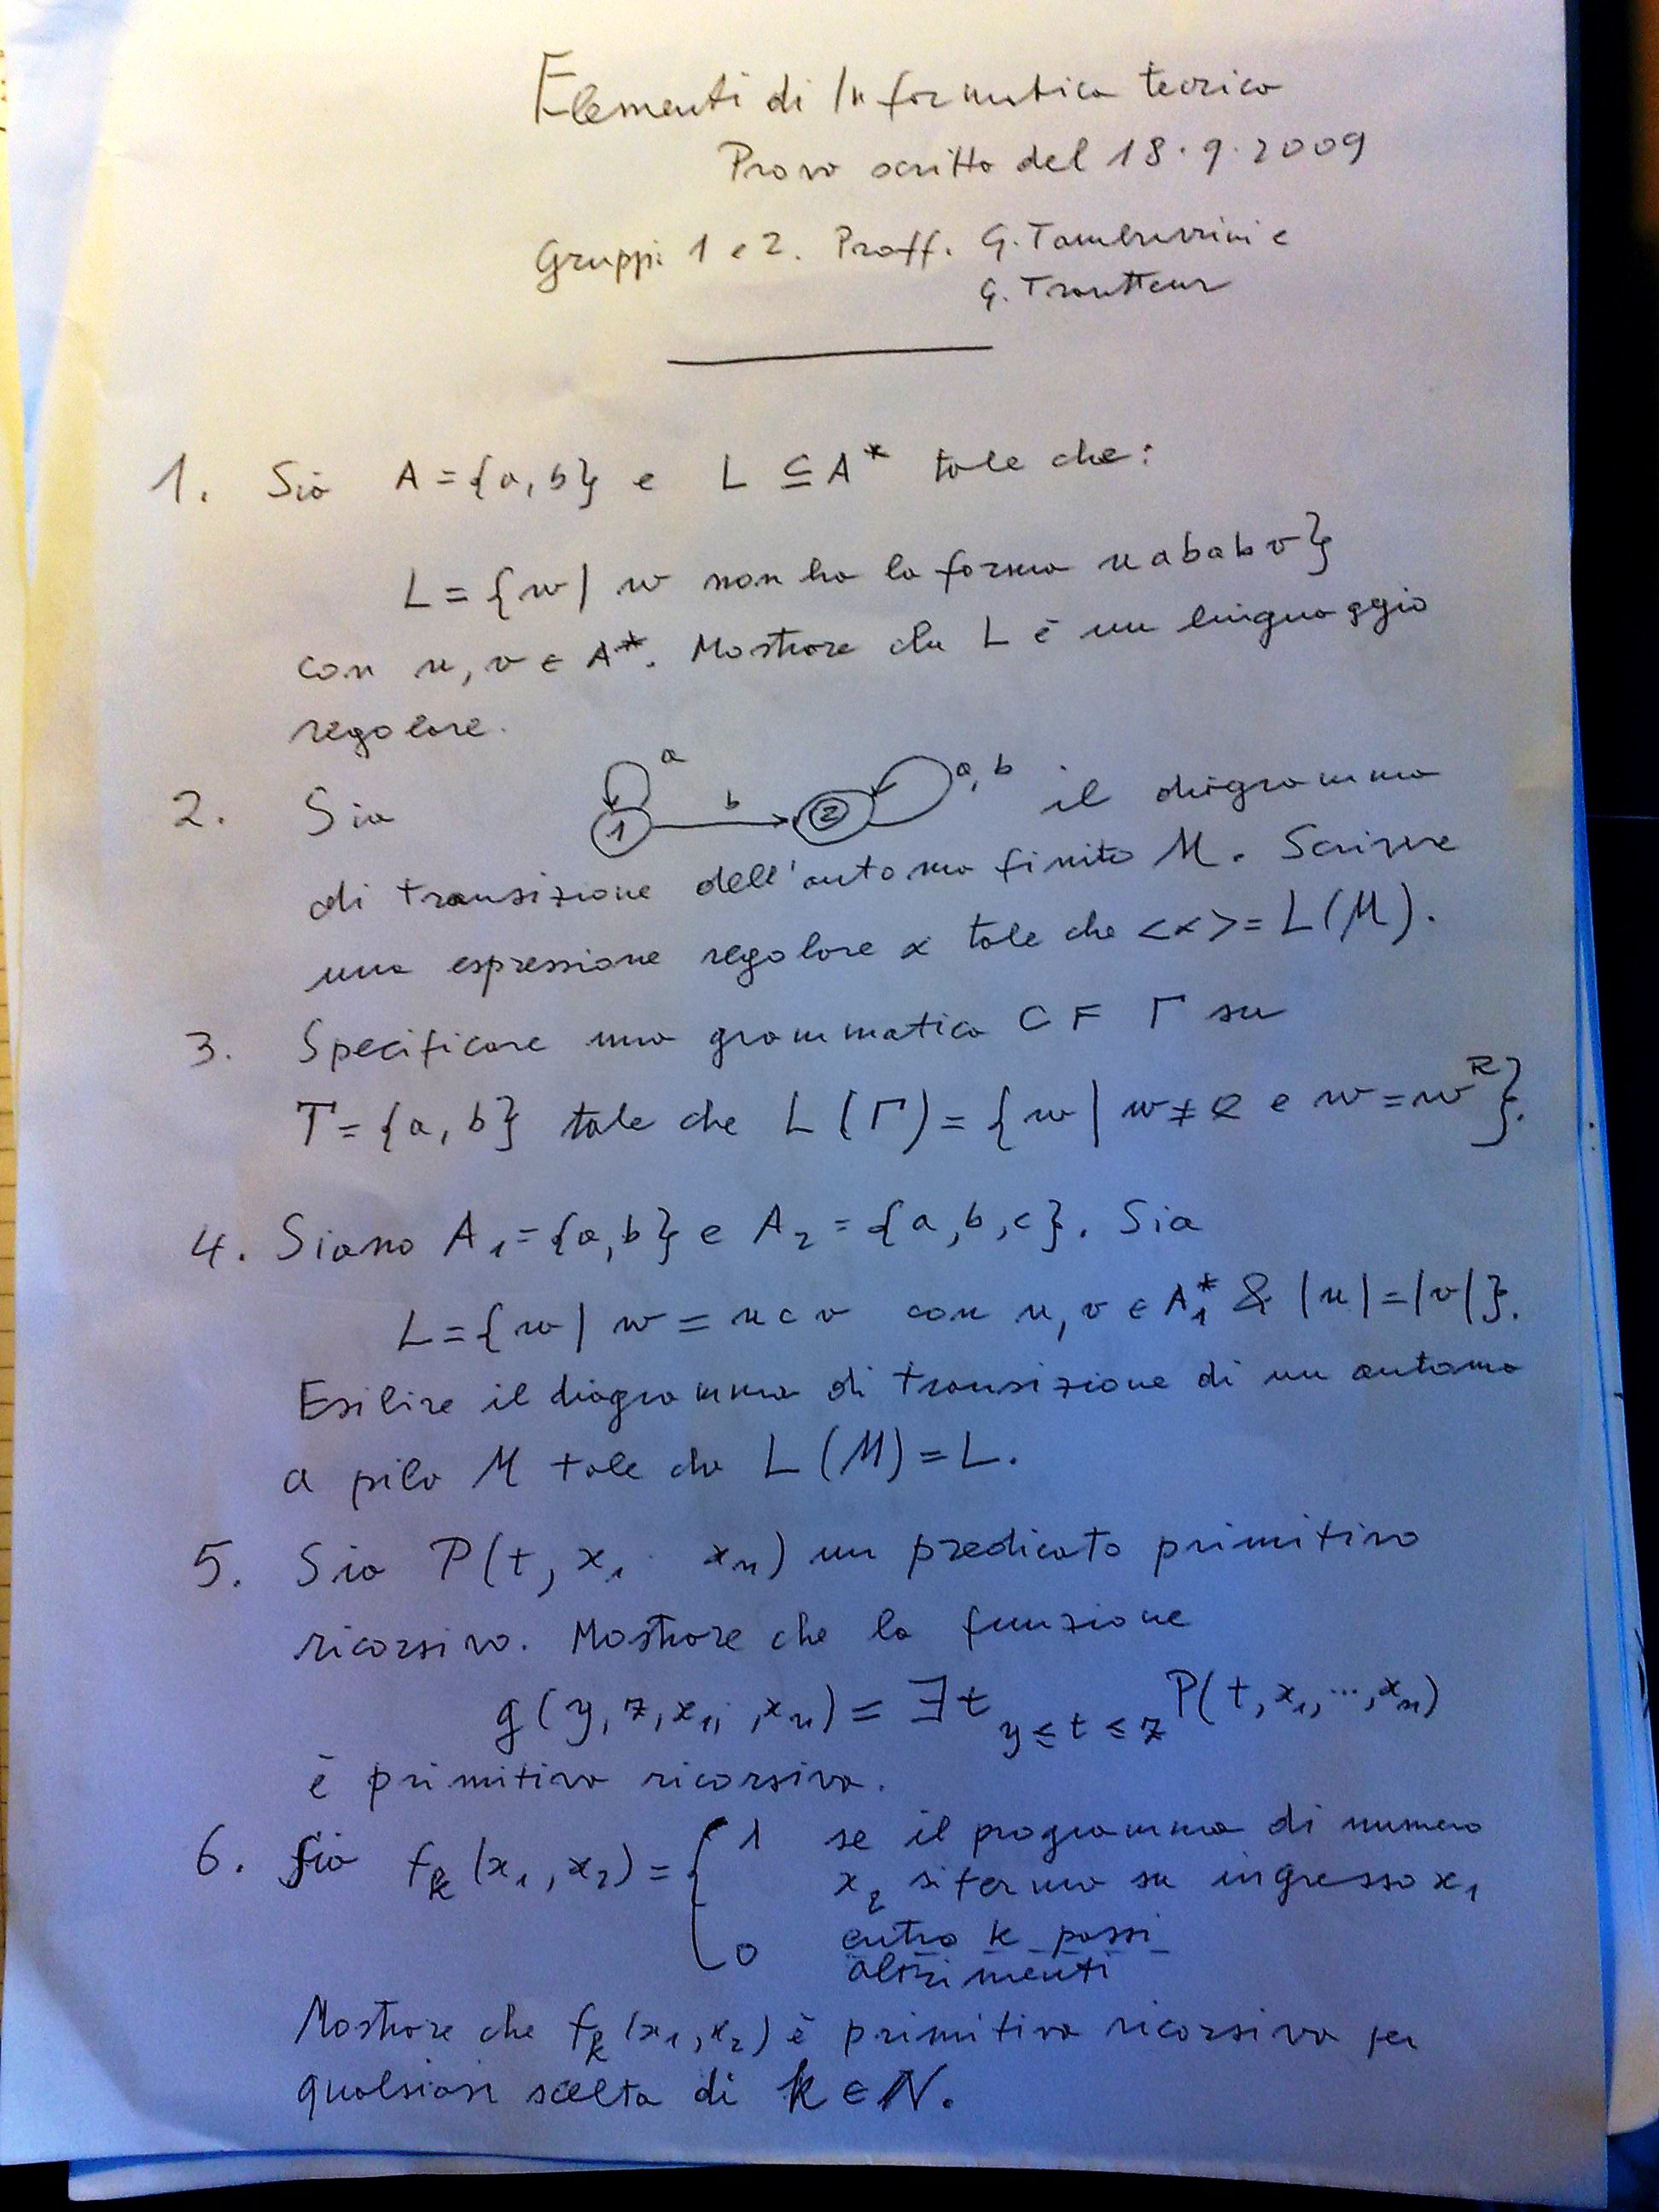 Elementi di Informatica teorica
Prova scritta del 18.9.2009
Gruppi 1 e 2. Proff. G. Tamburrini e
G. Trautteur
1. Sia A = {a, b} e L ⊆ A* tale che:
L = {w | w non ha la forma u a b a b v}
con u, v ∈ A*. Mostrare che L è un linguaggio
regolare.
a
2. Sia 1 b 2 a, b il diagramma
di transizione dell'automa finito M. Scrivere
una espressione regolare α tale che <α> = L(M).
3. Specificare una grammatica CF Γ su
T = {a, b} tale che L(Γ) = {w | w ≠ e e w = w^R}.
4. Siano A₁ = {a, b} e A₂ = {a, b, c}. Sia
L = {w | w = u c v con u, v ∈ A₁* & |u| = |v|}.
Esibire il diagramma di transizione di un automa
a pila M tale che L(M) = L.
5. Sia P(t, x₁ xₙ) un predicato primitivo
ricorsivo. Mostrare che la funzione
g(y, z, x₁, , xₙ) = ∃t y≤t≤z P(t, x₁, ..., xₙ)
è primitiva ricorsiva.
6. Sia fₖ(x₁, x₂) = { 1 se il programma di numero
x₂ si ferma su ingresso x₁
entro k passi
0 altrimenti
Mostrare che fₖ(x₁, x₂) è primitiva ricorsiva per
qualsiasi scelta di k ∈ N.